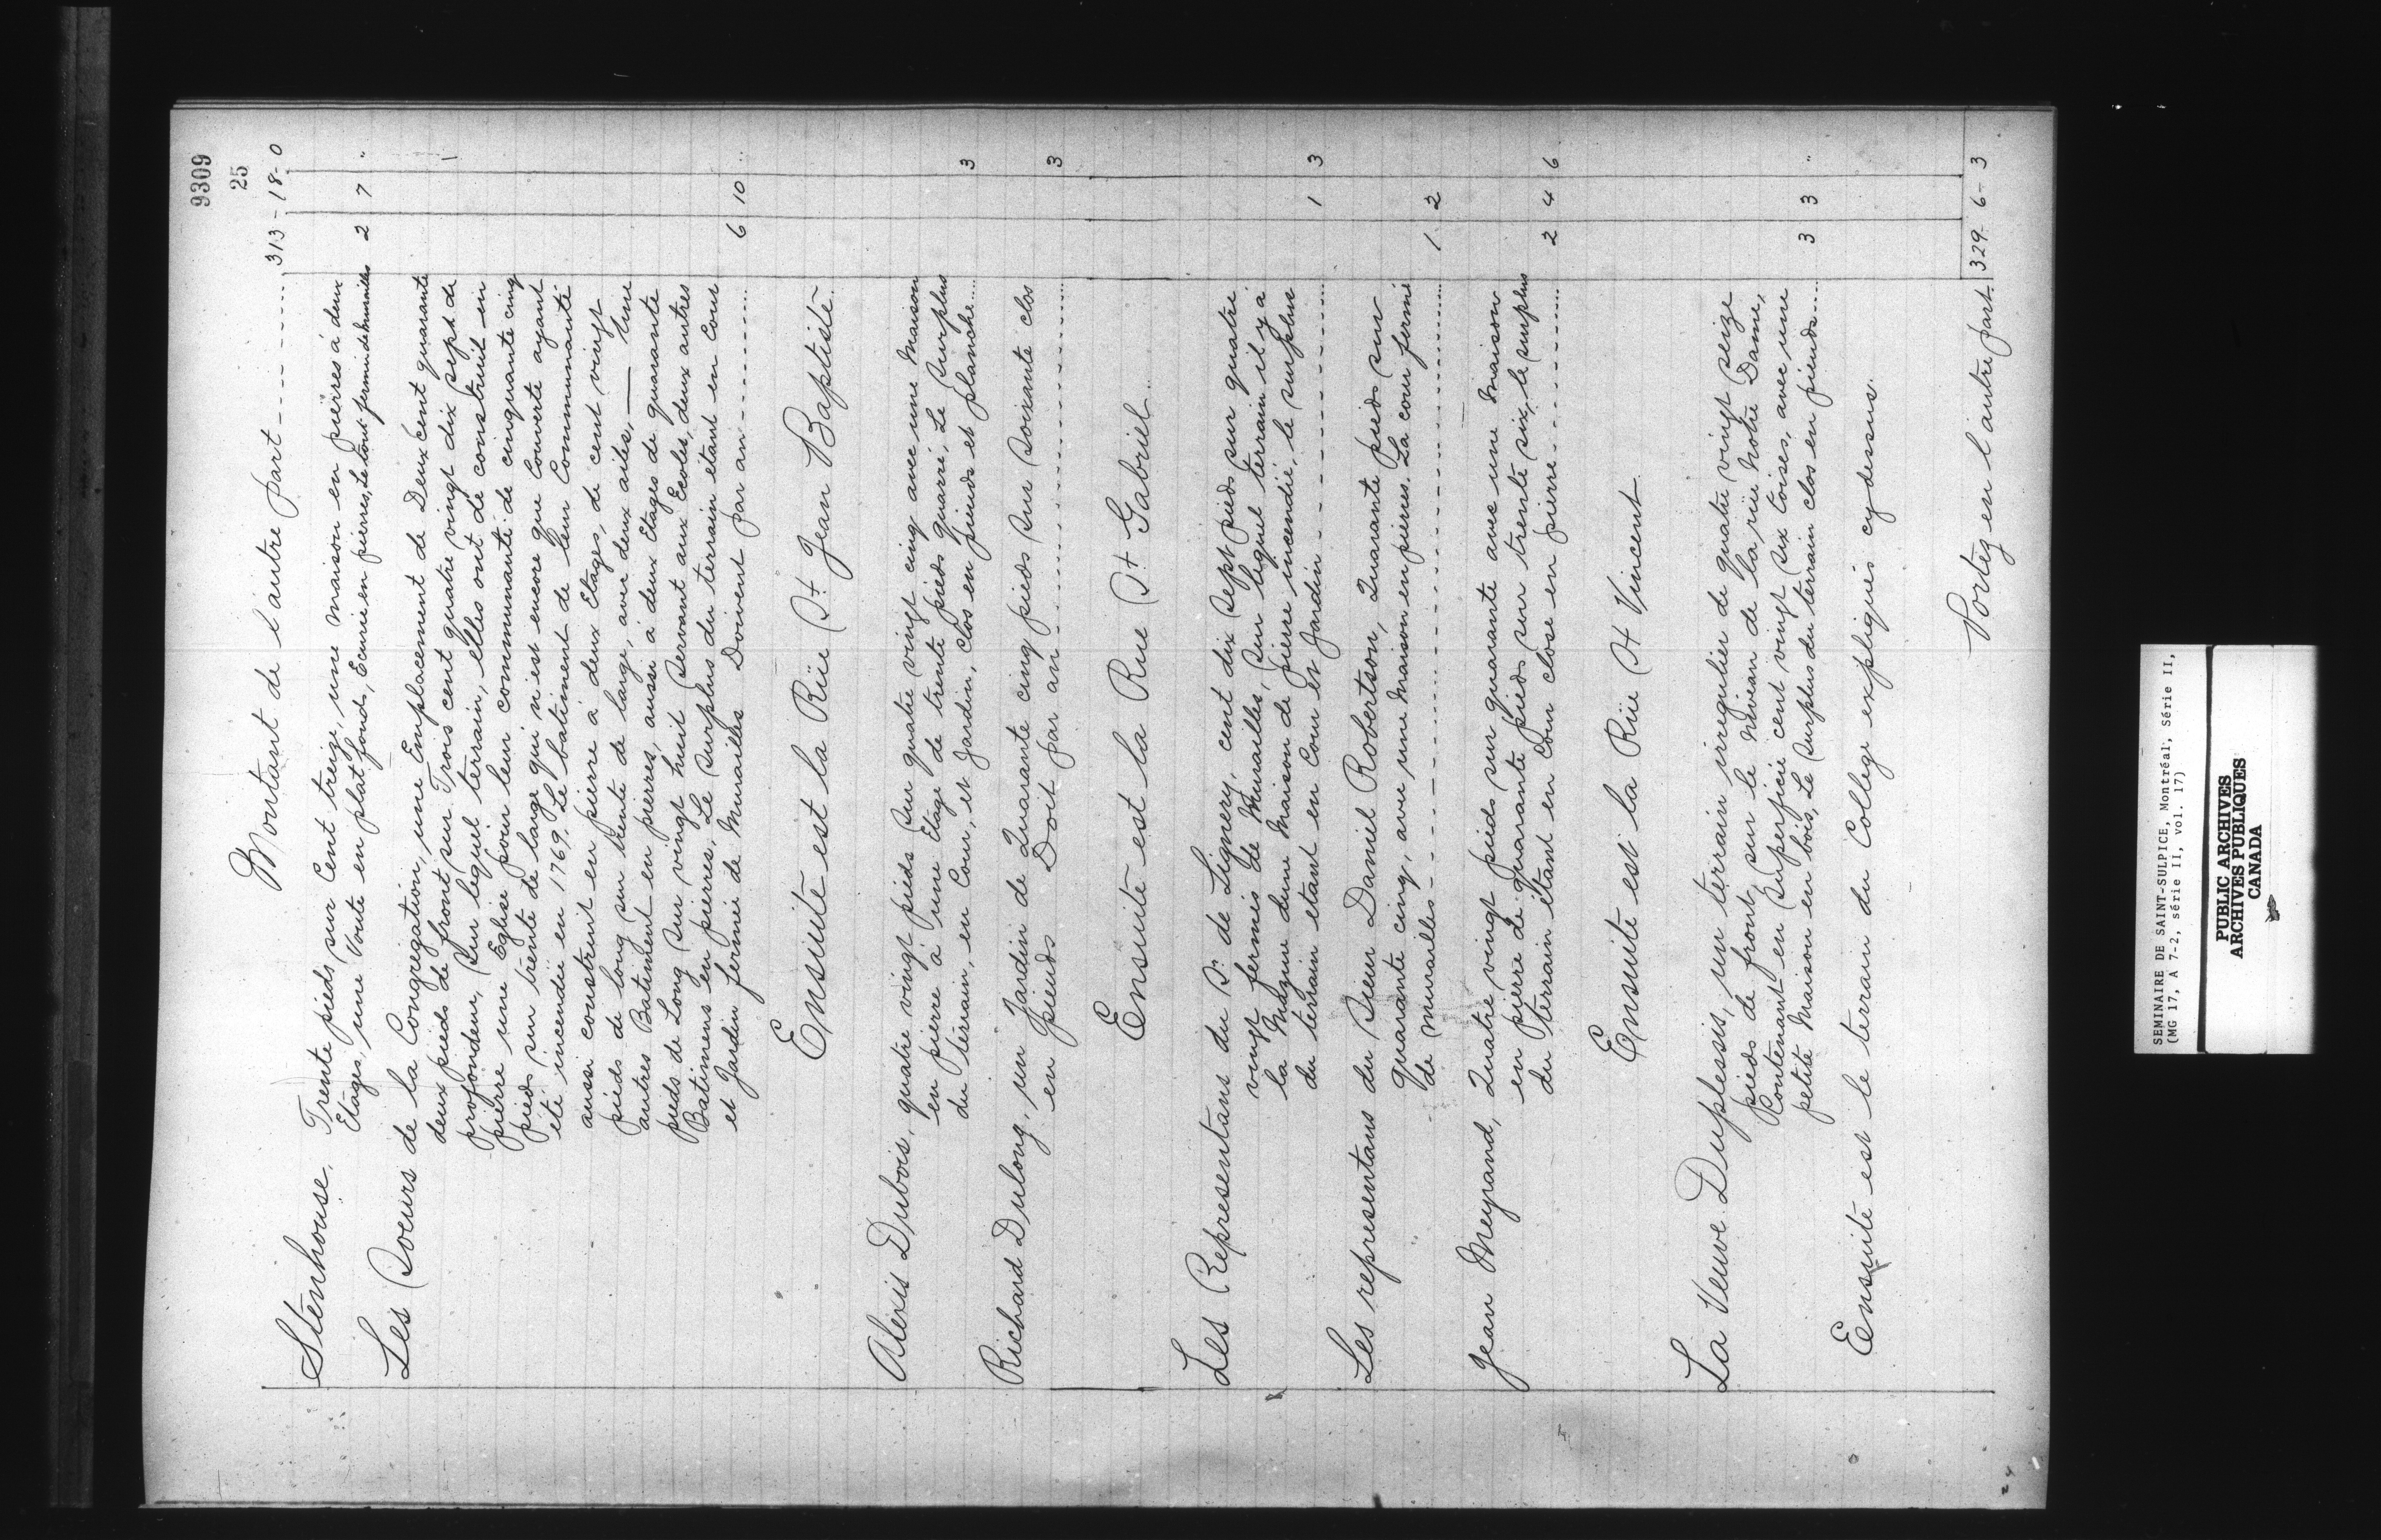 9309
25
Montant de l'autre part ---- 313 - 18 - 0
Stenhouse. Trente pieds sur Cent treize, une maison en pierres à deux
Etages, une Voute en plat fond, Ecurie en pierres, Le tout fermé de murailles 2 7 "
Les Soeurs de la Congregation, une Emplacement de Deux Cent quarante
deux pieds de front sur Trois cent quatre vingt dix sept de
profondeur, Sur lequel terrain, elles ont de construit en
pierre une Eglise pour leur communauté de cinquante cinq
pieds sur trente de large qui n'est encore que Couverte ayant
été incendiée en 1769. Le batiment de leur Communauté
aussi construit en pierre à deux Etages, de cent vingt
pieds de long sur trente de large, avec deux ailes, — Une
autres Batiment en pierres, aussi à deux Etages de quarante
pieds de Long Sur vingt huit Servant aux Ecoles, deux autres
Batimens en pierres, Le Surplus du terrain etant en Cour
et Jardin fermée de Murailles Doivent par an ---- 6 10 "
Ensuite est la Rüe St Jean Baptiste
Alexis Dubois, quatre vingt pieds Sur quatre vingt cinq avec une Maison
en pierre à une Etage de trente pieds quarré, Le Surplus
du terrain, en Cour, et Jardin, Clos en pieuds et planche.... 3
Richard Dulong, un Jardin de Quarante cinq pieds Sur Soixante clos
en pieuds Doit par an ---- 3
Ensuite est la Rue St Gabriel
Les Representans du Sr. de Lignery, cent dix Sept pieds sur quatre
vingt fermés de Murailles, Sur lequel terrain il y a
la Mazure dune Maison de pierre incendiée, le surplus
du terrain etant en Cour et Jardin ---- 1 3
Les representans du Sieur Daniel Robertson, Quarante pieds sur
quarante cinq, avec une Maison en pierres. La cour fermé
de murailles ---- 1 2
Jean Meyrand, Quatre vingt pieds sur quarante avec une Maison
en pierre de quarante pieds sur trente six, le surplus
du terrain étant en Cour close en pierre ---- 2 4 6
Ensuite est la Rüe St Vincent
La Veuve Duplessis, un terrain irregulier de quatre vingt seize
pieds de front sur le Niveau de la rüe Notre Dame,
Contenant en Superficie cent vingt Six toises, avec une
petite Maison en bois, Le Surplus du terrain clos en pieuds.... 3 3 "
Ensuite est le terrain du College expliqués cydessus.
Portez en l'autre part. 329 - 6 - 3
24
SEMINAIRE DE SAINT-SULPICE, Montréal, Série II,
(MG 17, A 7-2, série II, vol. 17)
PUBLIC ARCHIVES
ARCHIVES PUBLIQUES
CANADA